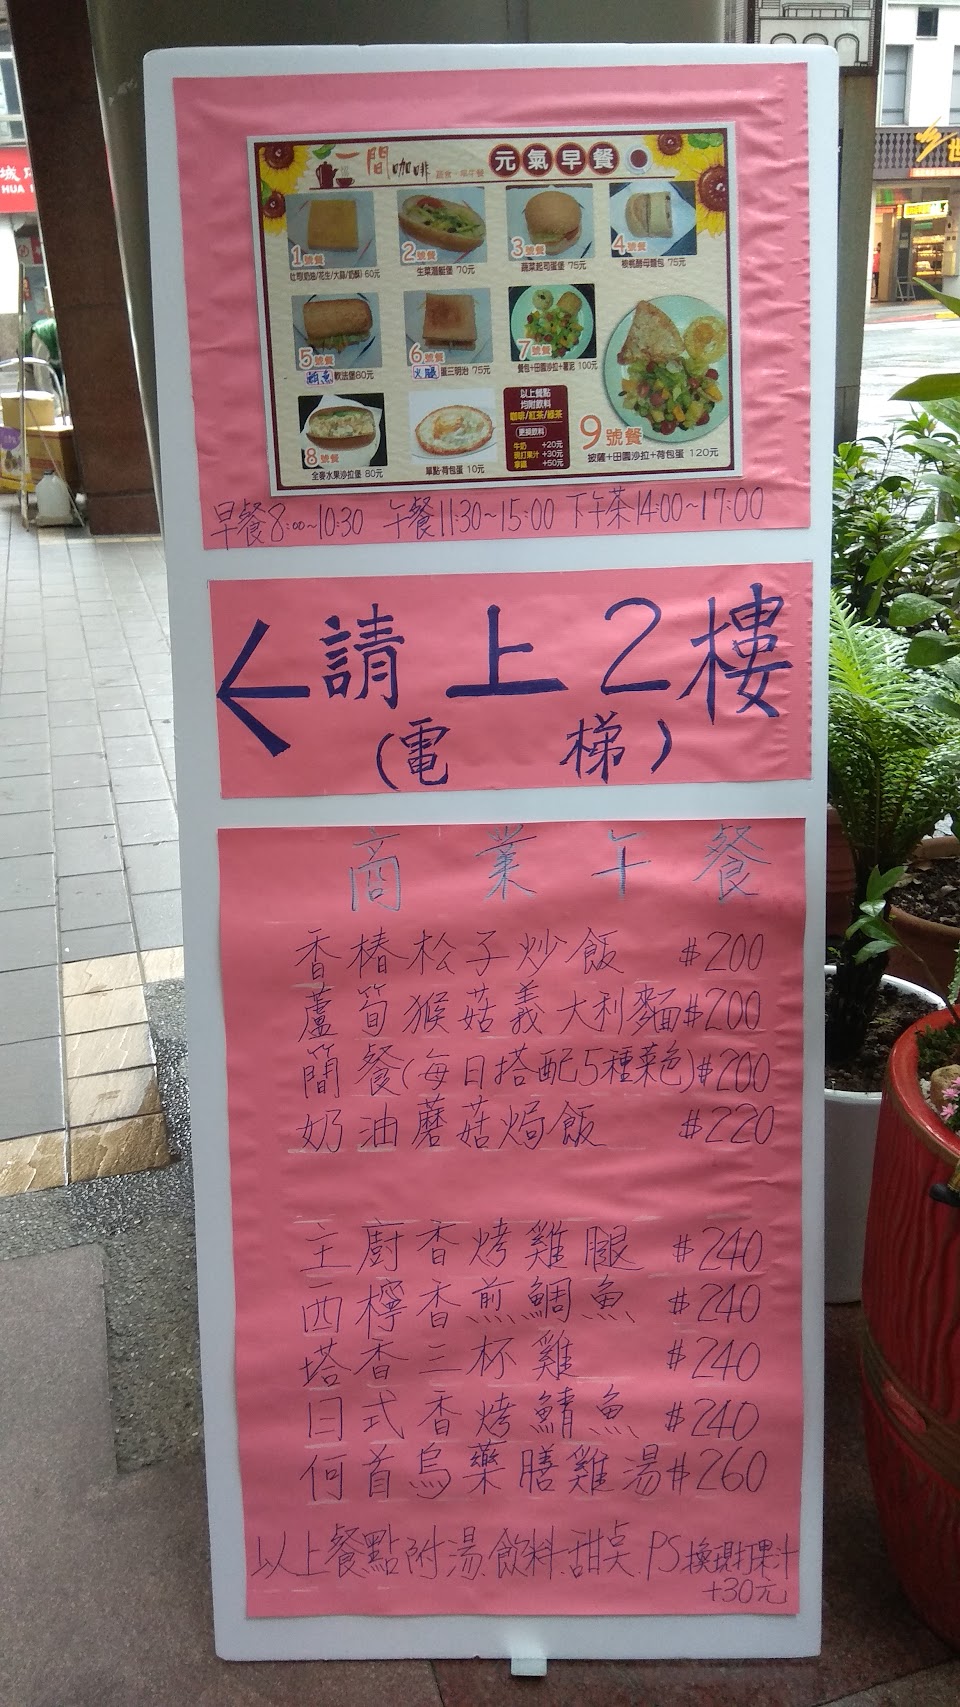 一間咖啡
蔬食·早午餐
元氣早餐
1號餐
吐司(奶油/花生/大蒜/奶酥) 60元
2號餐
生菜潛艇堡 70元
3號餐
蔬菜起司蛋堡 75元
4號餐
核桃酵母麵包 75元
5號餐
鯛魚軟法堡80元
6號餐
火腿蛋三明治 75元
7號餐
餐包+田園沙拉+薯泥 100元
8號餐
全麥水果沙拉堡 80元
單點·荷包蛋 10元
以上餐點
均附飲料
咖啡/紅茶/綠茶
更換飲料
牛奶 +20元
現打果汁 +30元
拿鐵 +50元
9號餐
披薩+田園沙拉+荷包蛋 120元
早餐8:00~10:30 午餐11:30~15:00 下午茶14:00~17:00
請上2樓
(電梯)
商業午餐
香椿松子炒飯 $200
蘆筍猴菇義大利麵$200
簡餐(每日搭配5種菜色)$200
奶油蘑菇焗飯 $220
主廚香烤雞腿 $240
西檸香煎鯛魚 $240
塔香三杯雞 $240
日式香烤鯖魚 $240
何首烏藥膳雞湯$260
以上餐點附湯.飲料.甜点.PS換現打果汁
+30元
城
HUA
世